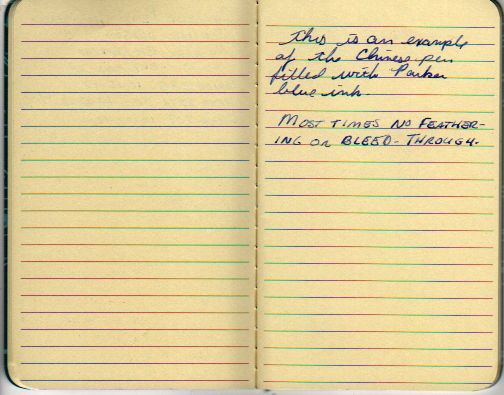 This is an example
of the Chinese pen
filled with Parker
blue ink.
MOST TIMES NO FEATHER-
ING OR BLEED-THROUGH.